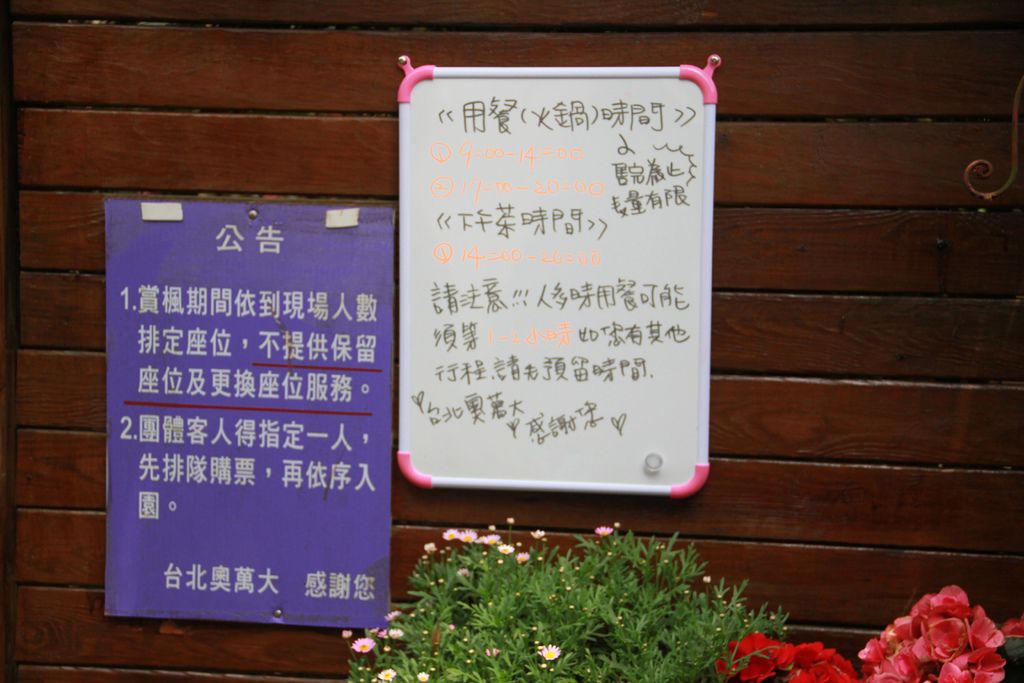 公告
1.賞楓期間依到現場人數
排定座位，不提供保留
座位及更換座位服務。
2.團體客人得指定一人，
先排隊購票，再依序入
園。
台北奧萬大 感謝您
《用餐(火鍋)時間》
① 9:00-14:00
② 17:00-20:00
售完為止
數量有限
《下午茶時間》
① 14:00-20:00
請注意!!! 人多時用餐可能
須等1-2小時 如您有其他
行程.請先預留時間.
♡台北奧萬大
♡感謝您♡